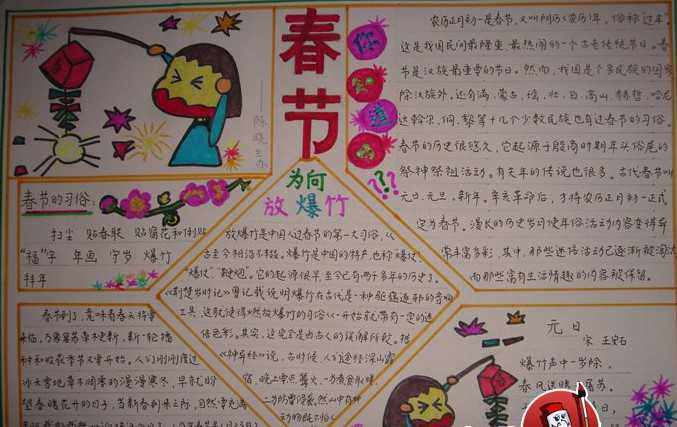 春节
你
知
道
吗
???
陈晓
农历正月初一是春节,又叫阴历(农历)年,俗称过年。
这是我国民间最隆重、最热闹的一个古老传统节日。春
节是汉族最重要的节日。然而,我国是个多民族的国家
除汉族外,还有满、蒙古、瑶、壮、白、高山、赫哲、哈尼
达斡尔、侗、黎等十几个少数民族也有过春节的习俗。
春节的历史很悠久,它起源于殷商时期年头岁尾的
祭神祭祖活动。有关年的传说也很多。古代春节叫
元日、元旦、新年。辛亥革命后,才将农历正月初一正式
定为春节。漫长的历史岁月使年俗活动内容变得异
常丰富多彩,其中,那些迷信活动已逐渐被淘汰
而那些富有生活情趣的内容被保留。
春节的习俗:
扫尘 贴春联 贴窗花和倒贴
“福”字 年画 守岁 爆竹
拜年
为何
放爆竹
放爆竹是中国人过春节的第一大习俗,从
古至今相沿不辍。爆竹是中国的特产,也称“爆仗”、
“炮仗”、“鞭炮”。它的起源很早,至今已有两千多年的历史了。
《荆楚岁时记》曾记载说明爆竹在古代是一种驱瘟逐邪的音响
工具,这就使得燃放爆竹的习俗从一开始就带有一定的迷
信色彩。其实,这完全是由古人的误解所致。据
《神异经》说,古时候,人们途经深山露
宿,晚上要点篝火,一为煮食取暖、
二为防野兽
春节到了,意味着春天将要
来临,万象复苏草木更新,新一轮播
种和收获季节又要开始。人们刚刚度过
冰天雪地草木凋零的漫漫寒冬,早就盼
望春暖花开的日子,当新春到来之际,自然要充满
元日
宋 王安石
爆竹声中一岁除,
春风送暖